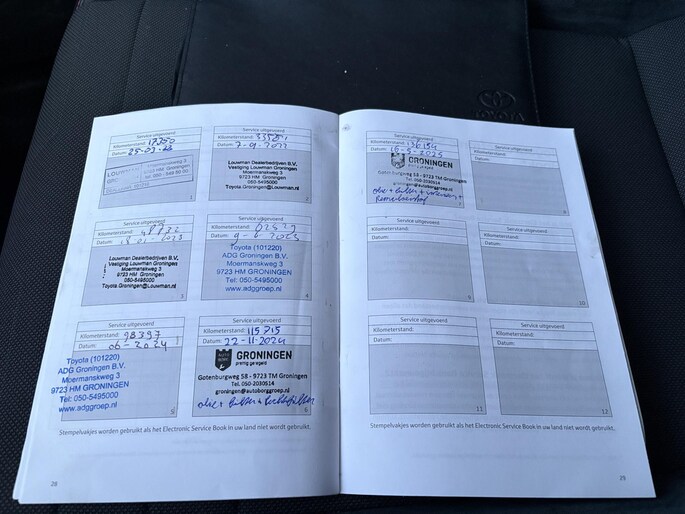 Service uitgevoerd
Kilometerstand: 17350
Datum:
LOUWMAN
1
Service uitgevoerd
Kilometerstand:
Datum: 7-09-2022
Louwman Dealerbedrijven B.V.
Vestiging Louwman Groningen
Moermanskweg 3
9723 HM Groningen
050-5495000
Toyota.Groningen@Louwman.nl
2
Service uitgevoerd
Kilometerstand:
Datum:
Louwman Dealerbedrijven B.V.
Vestiging Louwman Groningen
Moermanskweg 3
9723 HM Groningen
050-5495000
Toyota.Groningen@Louwman.nl
3
Service uitgevoerd
Kilometerstand:
Datum:
Toyota (101220)
ADG Groningen B.V.
Moermanskweg 3
9723 HM GRONINGEN
Tel: 050-5495000
www.adggroep.nl
4
Service uitgevoerd
Kilometerstand: 98397
Datum: 06-2024
Toyota (101220)
ADG Groningen B.V.
Moermanskweg 3
9723 HM GRONINGEN
Tel: 050-5495000
www.adggroep.nl
5
Service uitgevoerd
Kilometerstand: 115715
Datum: 22-11-2024
AUTO BORG
GRONINGEN
prettig geregeld
Gotenburgweg 58 - 9723 TM Groningen
Tel. 050-2030514
groningen@autoborggroep.nl
olie + +
6
Stempelvakjes worden gebruikt als het Electronic Service Book in uw land niet wordt gebruikt.
28
TOYOTA
Service uitgevoerd
Kilometerstand: 136154
Datum: 16-5-2025
GRONINGEN
Gotenburgweg 58 - 9723 TM Groningen
Tel. 050-2030514
groningen@autoborggroep.nl
olie + + +
Service uitgevoerd
Kilometerstand:
Datum:
8
Service uitgevoerd
Kilometerstand:
Datum:
9
Service uitgevoerd
Kilometerstand:
Datum:
10
Service uitgevoerd
Kilometerstand:
Datum:
11
Service uitgevoerd
Kilometerstand:
Datum:
12
Stempelvakjes worden gebruikt als het Electronic Service Book in uw land niet wordt gebruikt.
29